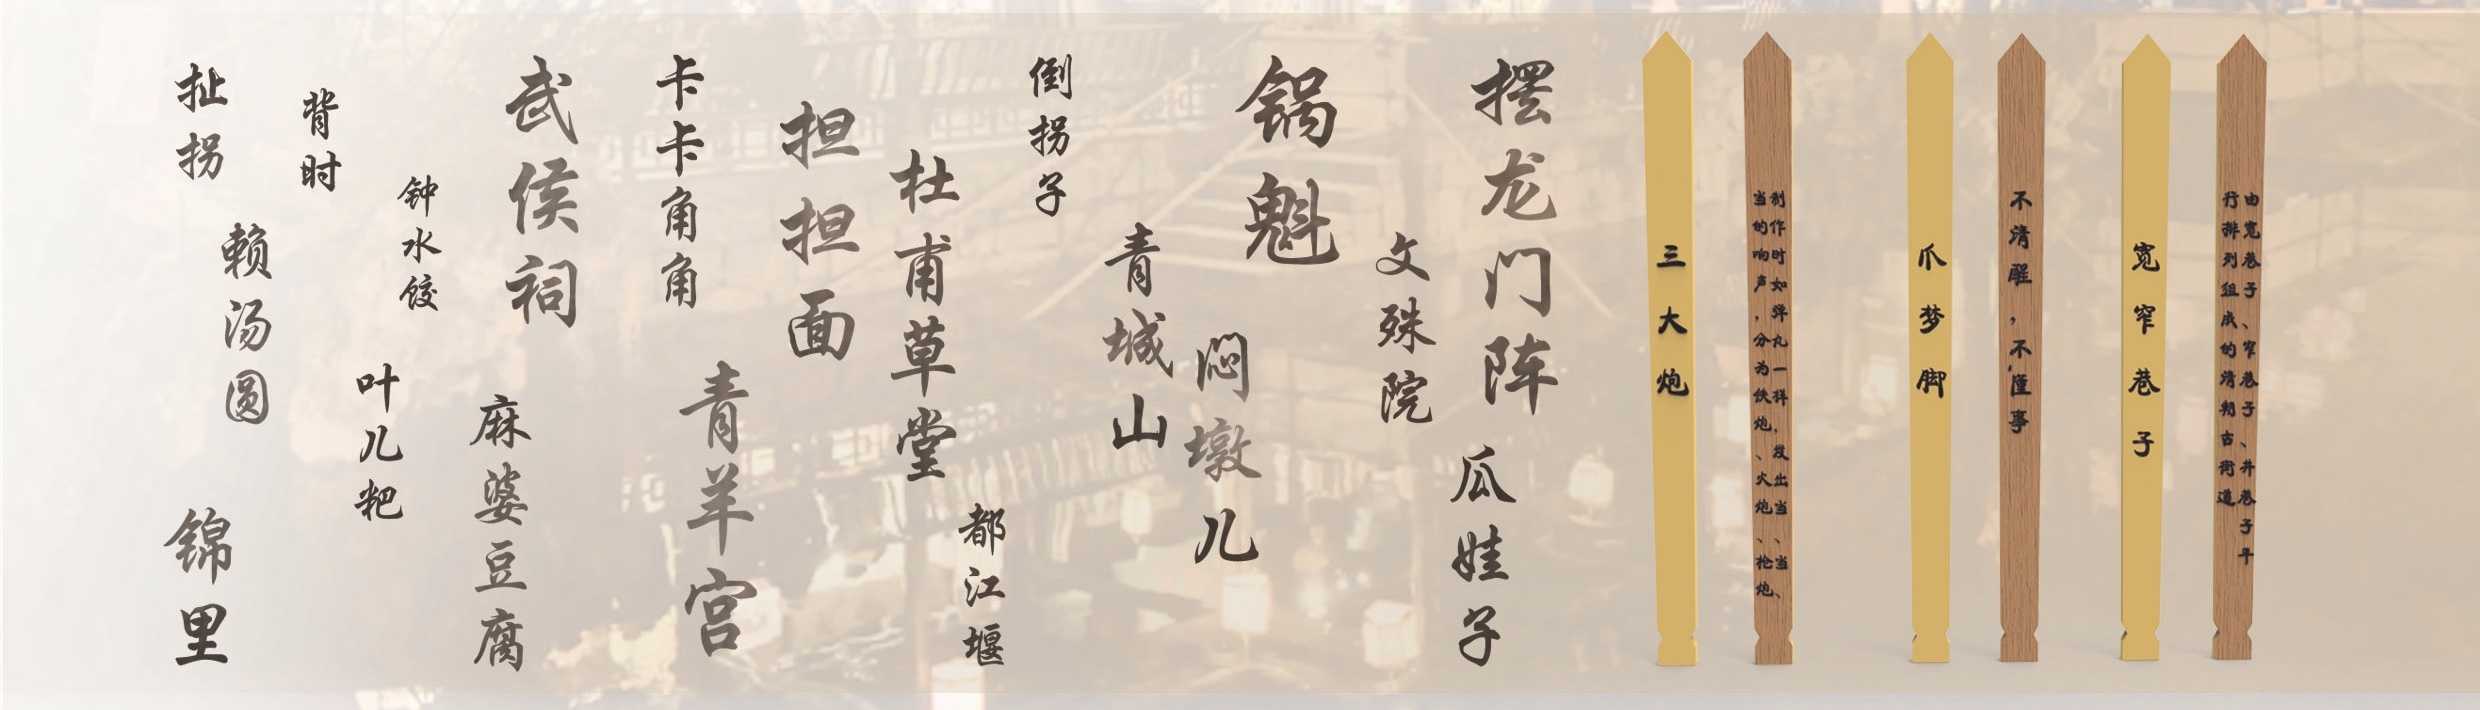 扯拐
背时
钟水饺
赖汤圆
叶儿粑
锦里
武侯祠
麻婆豆腐
卡卡角角
青羊宫
担担面
杜甫草堂
都江堰
倒拐子
青城山
锅魁
闷墩儿
文殊院
摆龙门阵
瓜娃子
三大炮
制作时如弹丸一样,发出当、当、
当的响声,分为铁炮、火炮、枪炮
爪梦脚
不清醒,不懂事
宽窄巷子
由宽巷子、窄巷子、井巷子平
行排列组成的清朝古街道